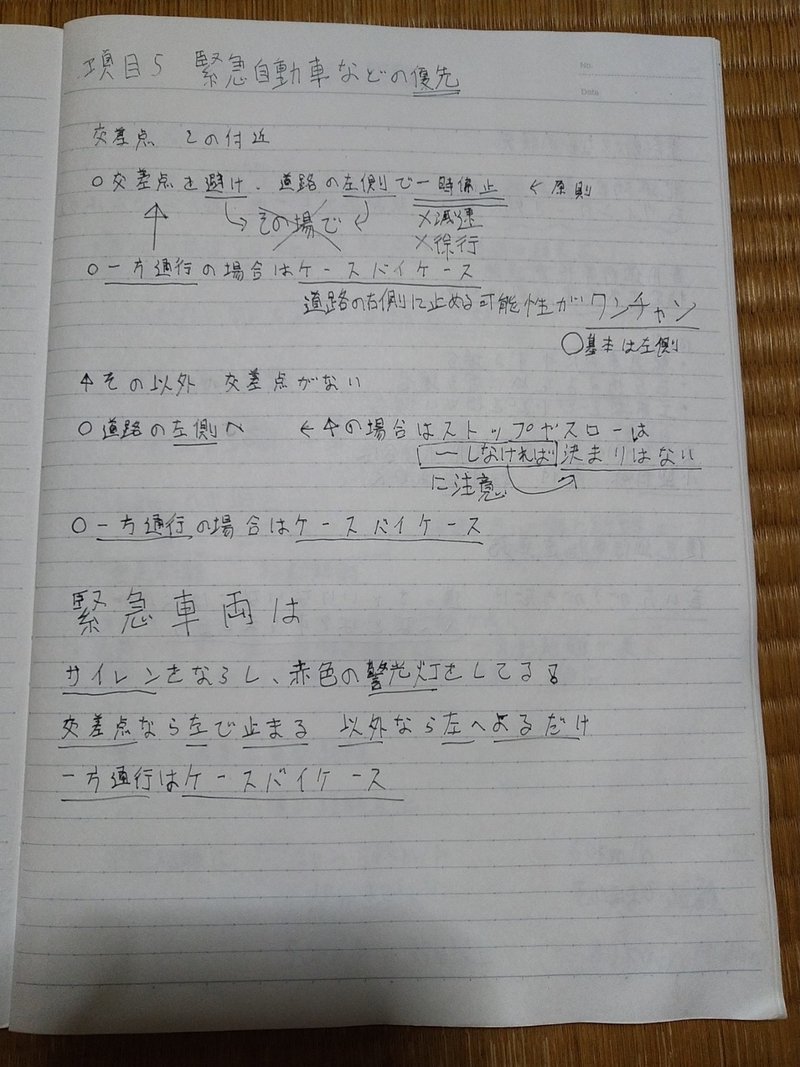 No.
Date
項目5 緊急自動車などの優先
交差点 その付近
○交差点を避け、道路の左側で一時停止 ← 原則
その場で
×減速
×徐行
○一方通行の場合はケースバイケース
道路の右側に止める可能性がワンチャン
○基本は左側
↑その以外 交差点がない
○道路の左側へ ←↑の場合はストップやスローは
〜しなければ 決まりはない
に注意
○一方通行の場合はケースバイケース
緊急車両は
サイレンをならし、赤色の警光灯をしてるる
交差点なら左で止まる 以外なら左へよるだけ
一方通行はケースバイケース